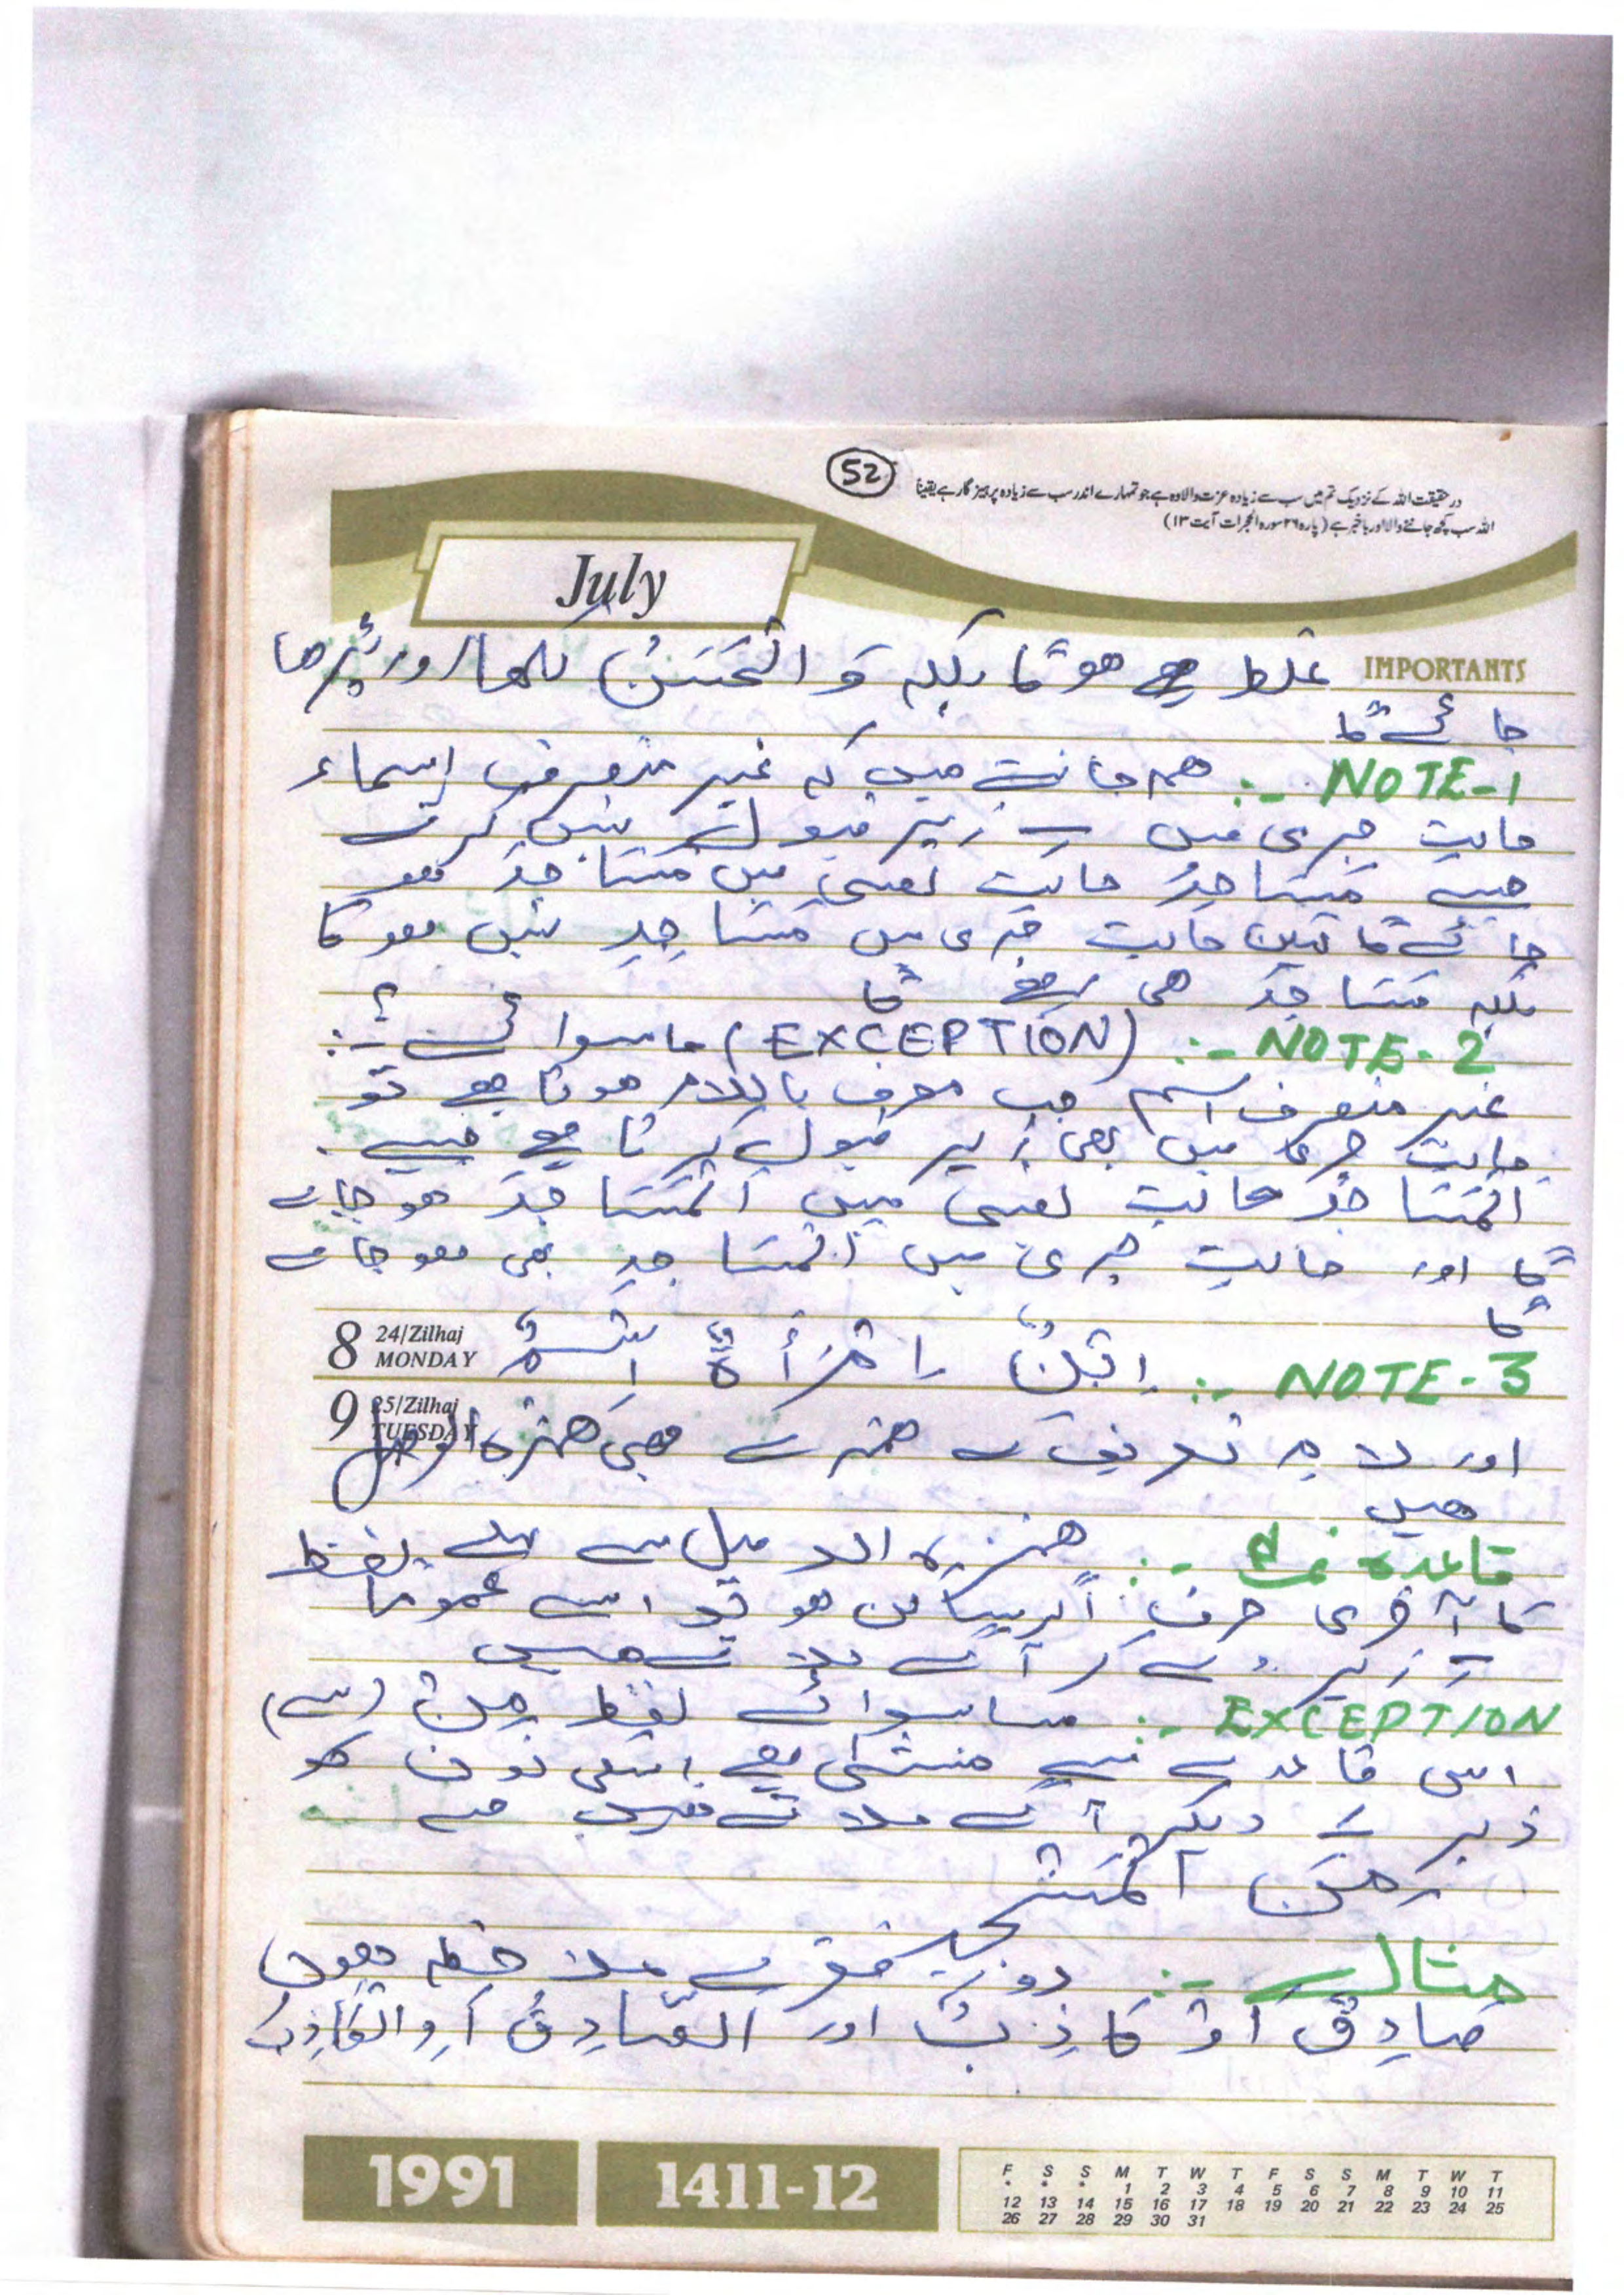 52
درحقیقت اللہ کے نزدیک تم میں سب سے زیادہ عزت والا وہ ہے جو تمہارے اندر سب سے زیادہ پرہیز گار ہے یقیناً
اللہ سب کچھ جاننے والا اور باخبر ہے (پارہ ۲۶ سورہ الحجرات آیت ۱۳)
July
IMPORTANTS
غلط ہے ہوگا بلکہ وَ الْحَسَنُ لکھا اور پڑھا
جائے گا
NOTE-1 :- ہم جانتے ہیں کہ غیر منصرف اسماء
حالتِ جری میں زیر قبول نہیں کرتے
جیسے مَسَاجِدُ حالت نصبی میں مَسَاجِدَ ہو
جائے گا لیکن حالت جری میں مَسَاجِدِ نہیں ہوگا
بلکہ مَسَاجِدَ ہی رہے گا
NOTE-2 :- (EXCEPTION) ماسوائے :-
غیر منصرف اسم جب معرف باللام ہوتا ہے تو
حالت جری میں بھی زیر قبول کرتا ہے جیسے
اَلْمَسَاجِدُ حالت نصبی میں اَلْمَسَاجِدَ ہو جائے
گا اور حالتِ جری میں اَلْمَسَاجِدِ بھی ہو جائے
گا
8 24/Zilhaj MONDAY
NOTE-3 :- اِبْنٌ اِمْرَأَةٌ اِسْمٌ
9 25/Zilhaj TUESDAY
اور لامِ تعریف کے ہمزے بھی ہمزہ الوصل
ہیں
قاعدہ :- ہمزہ الوصل سے پہلے لفظ
کا آخری حرف اگر ساکن ہو تو اسے عموماً
زیر دے کر آگے ملاتے ہیں
EXCEPTION :- ماسوائے لفظ مِنْ (سے)
اس قاعدے سے مستثنیٰ ہے اسکی نون کو
زبر دیکر آگے ملاتے ہیں جیسے
مِنَ الْمَسْجِدِ
مثالے :- دو فقرے ملاحظہ ہوں
صَادِقٌ اَوْ كَاذِبٌ اور اَلصَّادِقُ اَوِ الْكَاذِبُ
1991
1411-12
F S S M T W T F S S M T W T
* * * 1 2 3 4 5 6 7 8 9 10 11
12 13 14 15 16 17 18 19 20 21 22 23 24 25
26 27 28 29 30 31